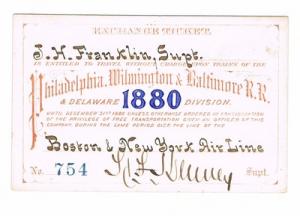 EXCHANGE TICKET.
J. H. Franklin, Supt.
IS ENTITLED TO TRAVEL WITHOUT CHARGE UPON TRAINS OF THE
Philadelphia, Wilmington & Baltimore R.R.
& DELAWARE 1880 DIVISION.
UNTIL DECEMBER 31ST 1880 UNLESS OTHERWISE ORDERED IN CONSIDERATION
OF THE PRIVILEGE OF FREE TRANSPORTATION GIVEN AN OFFICER OF THIS
COMPANY DURING THE SAME PERIOD OVER THE LINE OF THE
Boston & New York Air Line
No. 754 Supt.